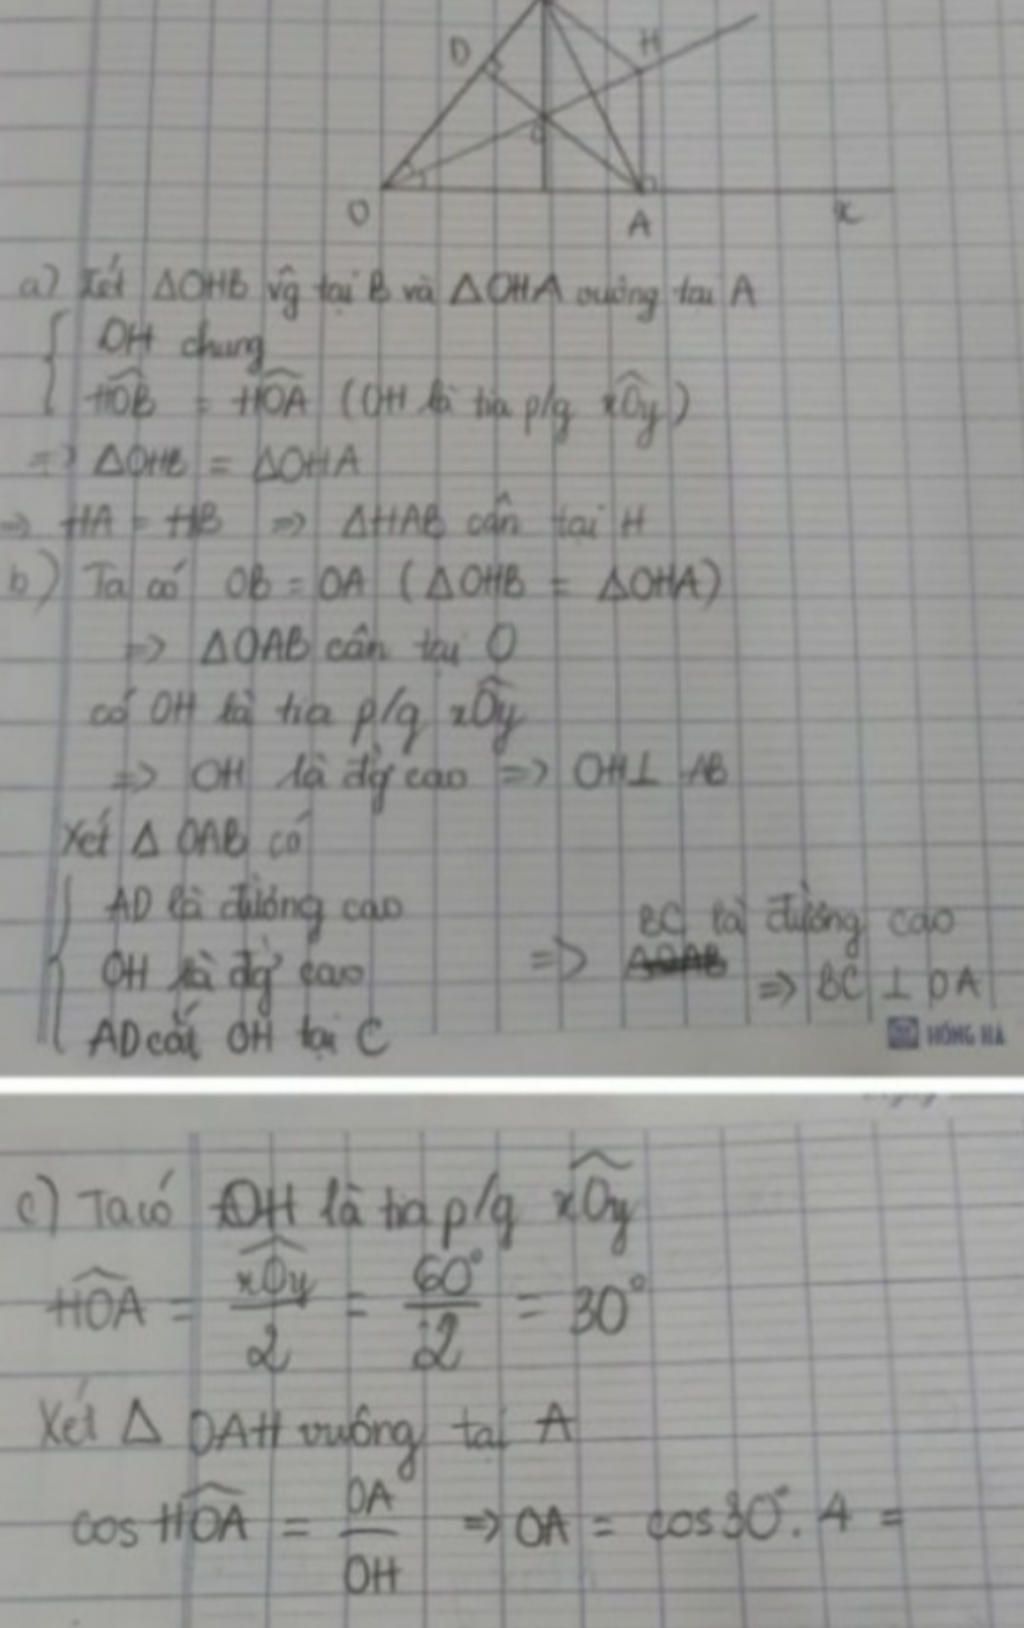 D
H
C
O
A
x
a) Xét ΔOHB vg̃ tại B và ΔOHA vuông tại A
OH chung
HOB = HOA (OH là tia p/g xOy)
=> ΔOHB = ΔOHA
=> HA = HB => ΔHAB cân tại H
b) Ta có OB = OA (ΔOHB = ΔOHA)
=> ΔOAB cân tại O
có OH là tia p/g xOy
=> OH là đg cao => OH ⊥ AB
Xét Δ OAB có
AD là đường cao
OH là đg cao
AD cắt OH tại C
=> BC là đường cao
=> BC ⊥ OA
HỒNG HÀ
c) Ta có OH là tia p/g xOy
HOA = xOy/2 = 60°/2 = 30°
Xét Δ OAH vuông tại A
cos HOA = OA/OH => OA = cos30°. 4 =